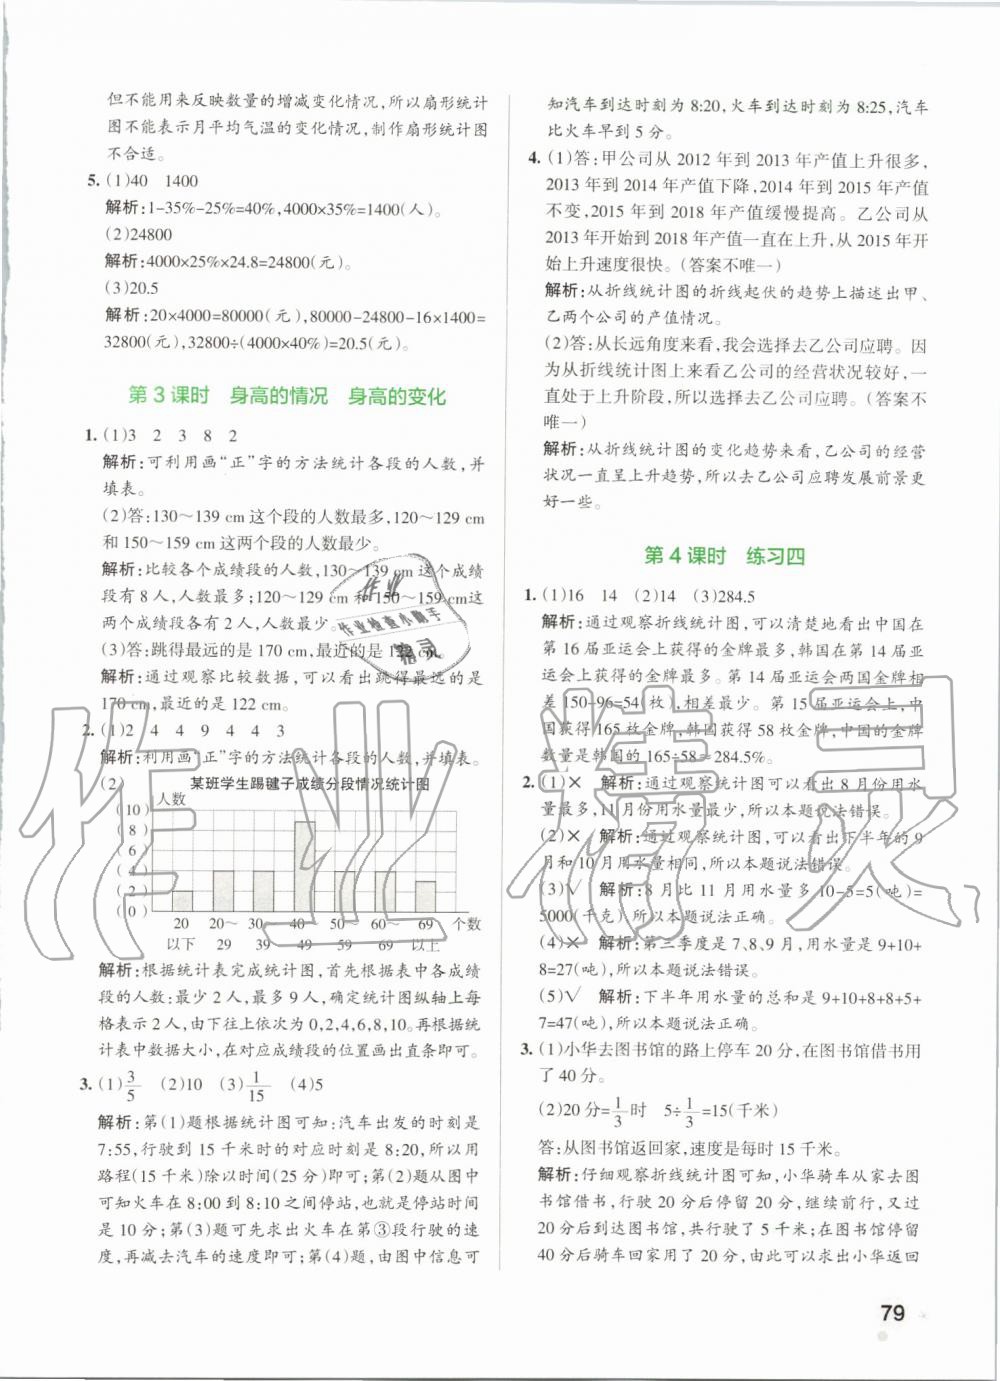 但不能用来反映数量的增减变化情况,所以扇形统计
图不能表示月平均气温的变化情况,制作扇形统计图
不合适。
5. (1)40 1400
解析:1-35%-25%=40%,4000×35%=1400(人)。
(2)24800
解析:4000×25%×24.8=24800(元)。
(3)20.5
解析:20×4000=80000(元),80000-24800-16×1400=
32800(元),32800÷(4000×40%)=20.5(元)。
第3课时 身高的情况 身高的变化
1. (1)3 2 3 8 2
解析:可利用画“正”字的方法统计各段的人数,并
填表。
(2)答:130~139 cm 这个段的人数最多,120~129 cm
和 150~159 cm 这两个段的人数最少。
解析:比较各个成绩段的人数,130~139 cm 这个段
有 8 人,人数最多;120~129 cm 和 150~159 cm 这
两个成绩段各有 2 人,人数最少。
(3)答:跳得最远的是 170 cm,最近的是 122 cm。
解析:通过观察比较数据,可以看到跳得最远的是
170 cm,最近的是 122 cm。
2. (1)2 4 4 9 4 4 3
解析:利用画“正”字的方法统计各段的人数,并填表。
(2) 某班学生踢毽子成绩分段情况统计图
人数
(10)
(8)
(6)
(4)
(2)
(0)
20 20~ 30~ 40~ 50~ 60~ 69 个数
以下 29 39 49 59 69 以上
解析:根据统计表完成统计图,首先根据表中各成绩
段的人数,最少 2 人,最多 9 人,确定统计图纵轴上每
格表示 2 人,由下往上依次为 0,2,4,6,8,10。再根据统
计表中数据大小,在对应成绩段的位置画出直条即可。
3. (1)3/5 (2)10 (3)1/15 (4)5
解析:第(1)题根据统计图可知:汽车出发的时刻是
7:55,行驶到 15 千米时的对应时刻是 8:20,所以用
路程(15 千米)除以时间(25 分)即可;第(2)题从图中
可知火车在 8:00 到 8:10 之间停站,也就是停站时间
是 10 分;第(3)题可先求出火车在第③段行驶的速
度,再减去汽车的速度即可;第(4)题,由图中信息可
知汽车到达时刻为 8:20,火车到达时刻为 8:25,汽车
比火车早到 5 分。
4. (1)答:甲公司从 2012 年到 2013 年产值上升很多,
2013 年到 2014 年产值下降,2014 年到 2015 年产值
不变,2015 年到 2018 年产值缓慢提高。乙公司从
2013 年开始到 2018 年产值一直在上升,从 2015 年开
始上升速度很快。(答案不唯一)
解析:从折线统计图的折线起伏的趋势上描述出甲、
乙两个公司的产值情况。
(2)答:从长远角度来看,我会选择去乙公司应聘。因
为从折线统计图上来看乙公司的经营状况较好,一
直处于上升阶段,所以选择去乙公司应聘。(答案不
唯一)
解析:从折线统计图的变化趋势来看,乙公司的经营
状况一直呈上升趋势,所以去乙公司应聘发展前景更
好一些。
第4课时 练习四
1. (1)16 14 (2)14 (3)284.5
解析:通过观察折线统计图,可以清楚地看出中国在
第 16 届亚运会上获得的金牌最多,韩国在第 14 届亚
运会上获得的金牌最多。第 14 届亚运会两国金牌相
差 150-96=54(枚),相差最少。第 15 届亚运会上,中
国获得 165 枚金牌,韩国获得 58 枚金牌,中国的金牌
数量是韩国的 165÷58≈284.5%。
2. (1)× 解析:通过观察统计图可以看出 8 月份用水
量最多,11 月份用水量最少,所以本题说法错误。
(2)× 解析:通过观察统计图,可以看出下半年的 9
月和 10 月用水量相同,所以本题说法错误。
(3)√ 解析:8 月比 11 月用水量多 10-5=5(吨)=
5000(千克),所以本题说法正确。
(4)× 解析:第三季度是 7、8、9 月,用水量是 9+10+
8=27(吨),所以本题说法错误。
(5)√ 解析:下半年用水量的总和是 9+10+8+8+5+
7=47(吨),所以本题说法正确。
3. (1)小华去图书馆的路上停车 20 分,在图书馆借书用
了 40 分。
(2)20 分=1/3时 5÷1/3=15(千米)
答:从图书馆返回家,速度是每时 15 千米。
解析:仔细观察折线统计图可知,小华骑车从家去图
书馆借书,行驶 20 分后停留 20 分,继续前行,又过
20 分后到达图书馆,共行驶了 5 千米;在图书馆停留
40 分后骑车回家用了 20 分,由此可以求出小华返回
79
作业
作业检查小助手
精灵
作业精灵